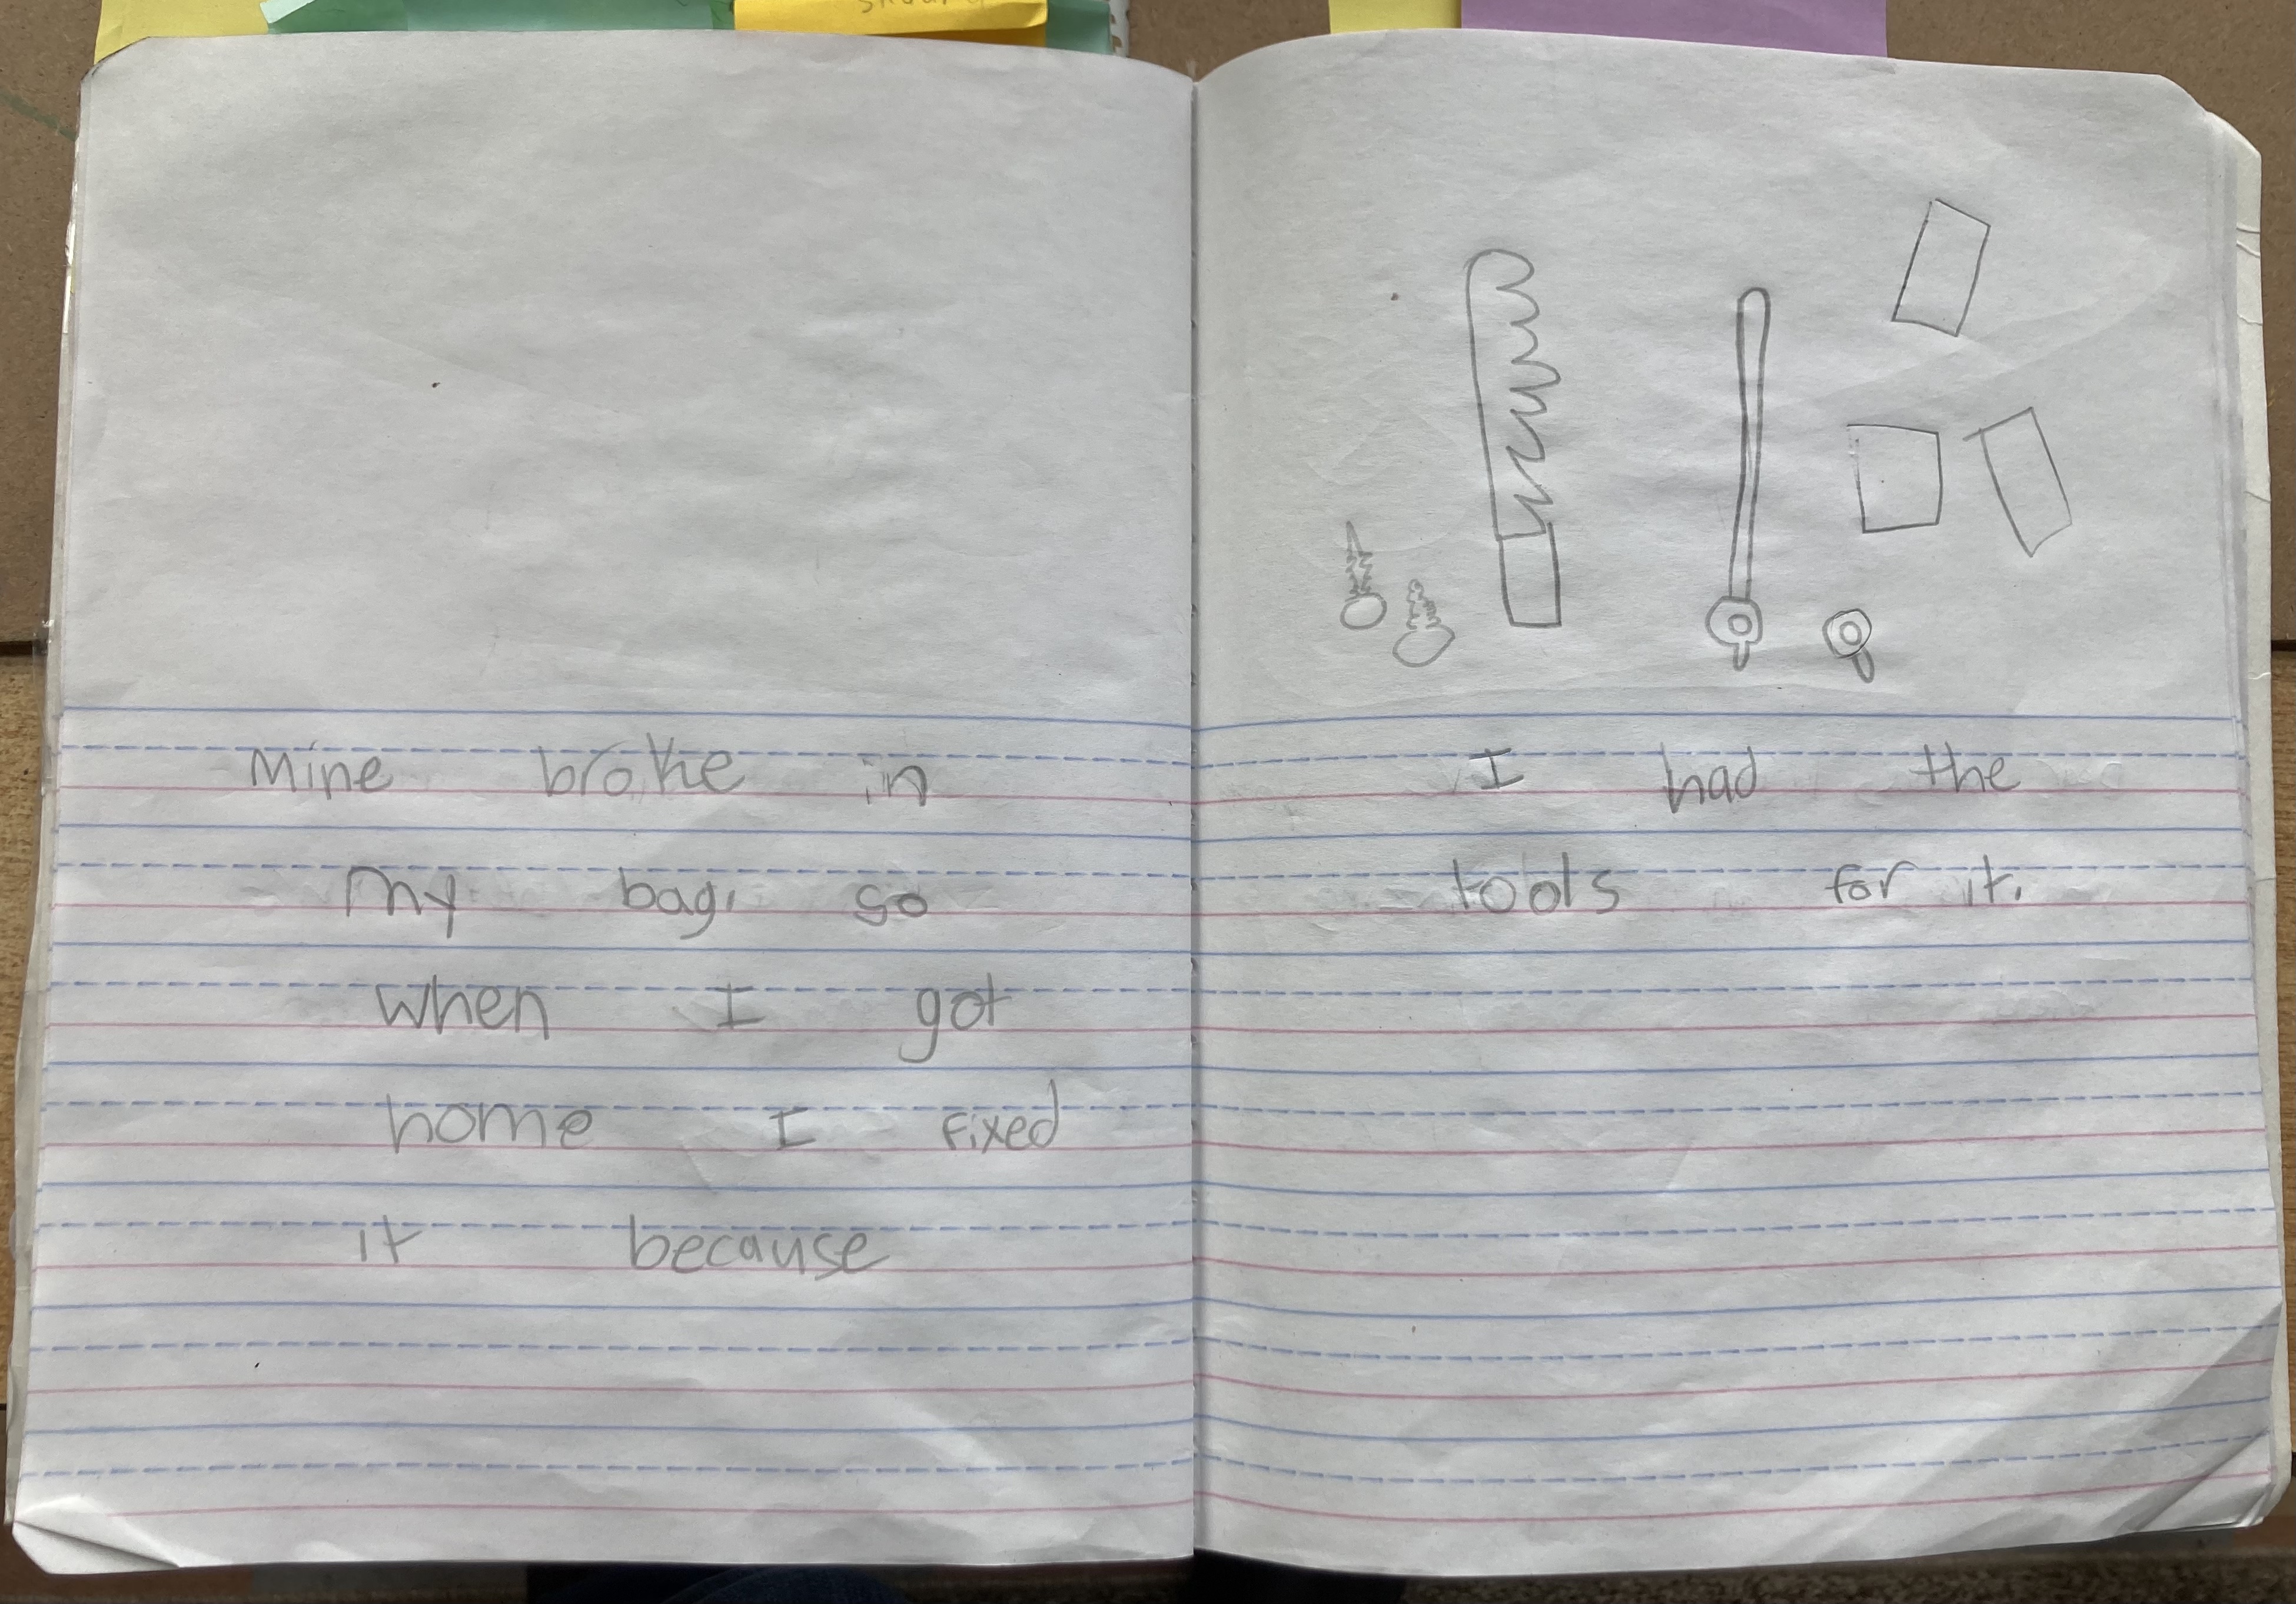 Mine broke in
My bag, so
when I got
home I fixed
it because
I had the
tools for it.